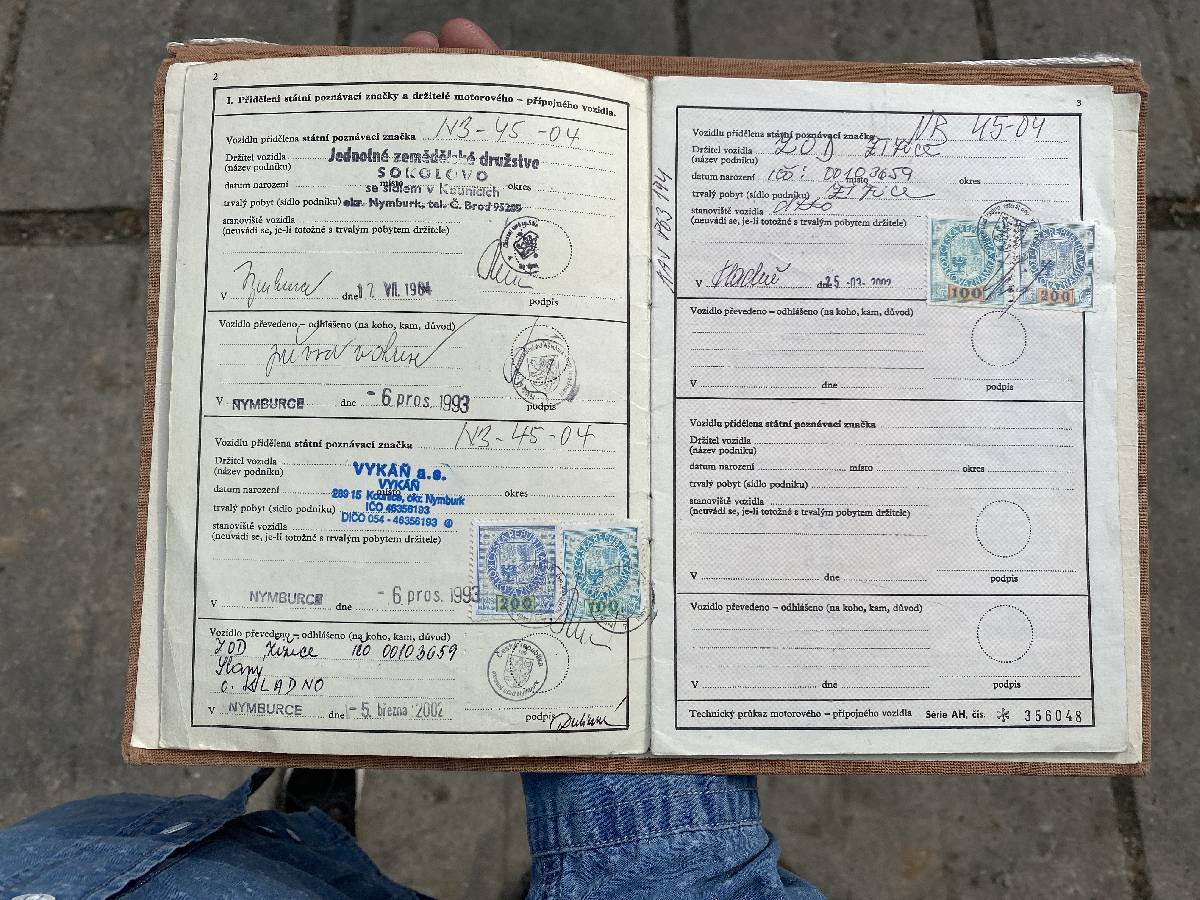 2
I. Přidělení státní poznávací značky a držitelé motorového – přípojného vozidla.
Vozidlu přidělena státní poznávací značka NB-45-04
Držitel vozidla Jednotné zemědělské družstvo
(název podniku) SOKOLOVO
datum narození místo se sídlem v Kounicích okres
trvalý pobyt (sídlo podniku) okr. Nymburk, tel. Č. Brod
stanoviště vozidla
(neuvádí se, je-li totožné s trvalým pobytem držitele)
V dne 12. VII. 1984
podpis
Vozidlo převedeno – odhlášeno (na koho, kam, důvod)
V NYMBURCE dne - 6. pros. 1993 podpis
Vozidlu přidělena státní poznávací značka NB-45-04
Držitel vozidla VYKÁŇ a.s.
(název podniku) VYKÁŇ
datum narození místo 289 15 Kounice, okr. Nymburk okres
trvalý pobyt (sídlo podniku) IČO 46356193
stanoviště vozidla DIČO 054 - 46356193
(neuvádí se, je-li totožné s trvalým pobytem držitele)
200 100
V NYMBURCE dne - 6. pros. 1993
Vozidlo převedeno – odhlášeno (na koho, kam, důvod)
ZOD Žižice IČO 00103659
Slaný
o. KLADNO
Česká republika
V NYMBURCE dne - 5. března 2002 podpis
3
Vozidlu přidělena státní poznávací značka NB 45-04
Držitel vozidla ZOD Žižice
(název podniku)
datum narození IČO: 00103659 místo okres
trvalý pobyt (sídlo podniku) Žižice
stanoviště vozidla dtto
(neuvádí se, je-li totožné s trvalým pobytem držitele)
V Kladně dne 25 -03- 2002
100 200
podpis
Vozidlo převedeno – odhlášeno (na koho, kam, důvod)
V dne podpis
Vozidlu přidělena státní poznávací značka
Držitel vozidla
(název podniku)
datum narození místo okres
trvalý pobyt (sídlo podniku)
stanoviště vozidla
(neuvádí se, je-li totožné s trvalým pobytem držitele)
V dne podpis
Vozidlo převedeno – odhlášeno (na koho, kam, důvod)
V dne podpis
Technický průkaz motorového – přípojného vozidla Série AH, čís. 356048